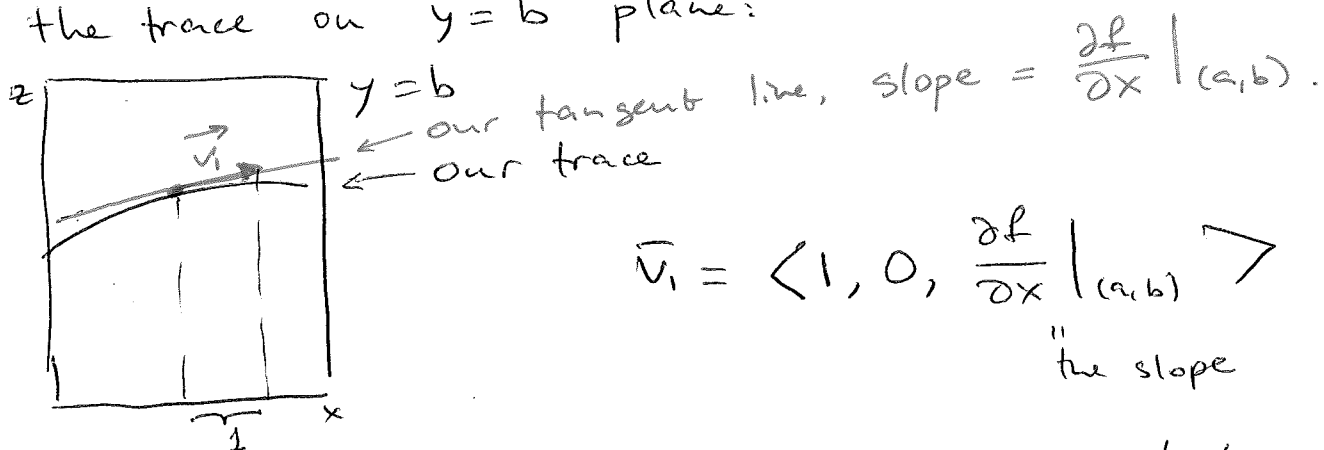 the trace on y = b plane:
z
y = b
our tangent line, slope = ∂f/∂x |(a,b).
v⃗₁
our trace
v̄₁ = <1, 0, ∂f/∂x |(a,b) >
"
the slope
x
1